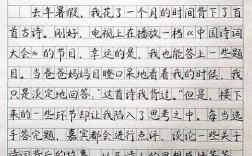 去年暑假，我花了一个月的时间背下了百
首古诗。刚好，电视上在播放一档《中国诗词
大会》的节目，幸运的是，我也能答上一些题
目。当爸爸妈妈目瞪口呆地看着我的时候，我
只是淡定地回答：“这首诗我背过。”但是，接下
来的一些环节却让我陷入了思考之中。每当选
手答完题，嘉宾都会进行点评，谈论一些关于